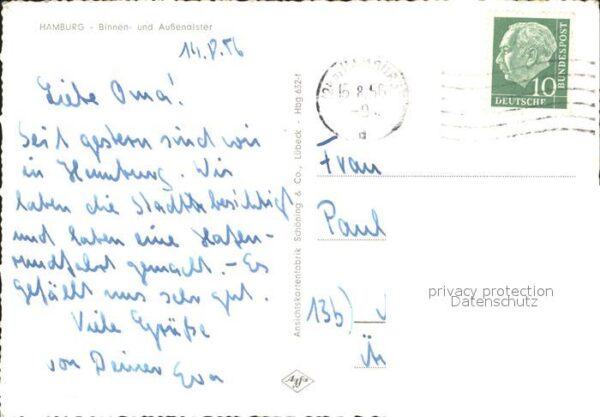 HAMBURG - Binnen- und Außenalster
14.8.56
Liebe Oma!
Seit gestern sind wir
in Hamburg. Wir
haben die Stadt besichtigt
und haben eine Hafen-
rundfahrt gemacht. - Es
gefällt uns sehr gut.
Viele Grüße
von Deiner Eva
Ansichtskartenfabrik Schöning & Co., Lübeck - Hbg 652-f
Agfa
15.8.56
DEUTSCHE
BUNDESPOST
10
Frau
Paul
13b)
privacy protection
Datenschutz